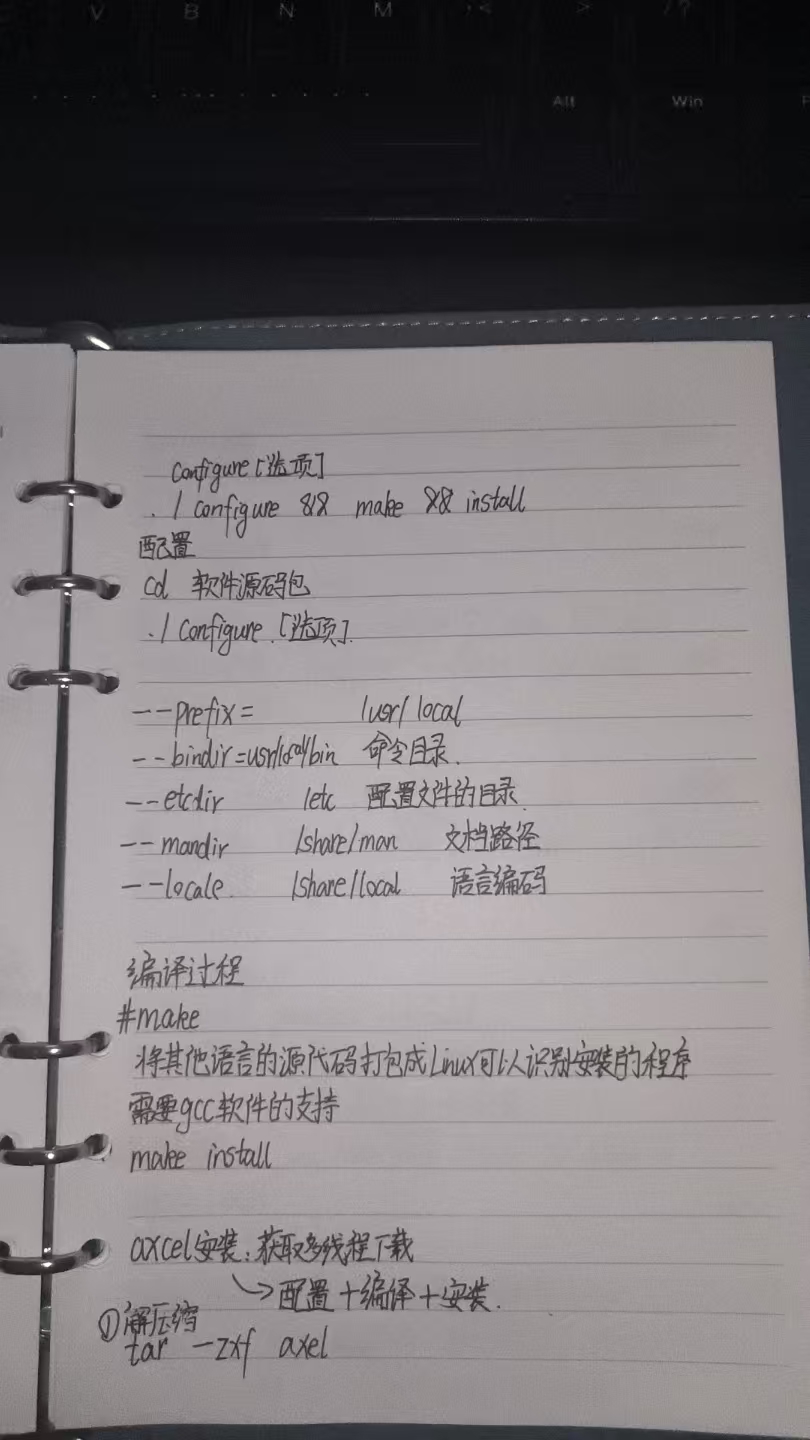 V B N M >< > / ?
Alt Win
Configure [选项]
./ configure && make && install
配置
cd 软件源码包
./ configure [选项].
--prefix= /usr/ local
--bindir=usr/local/bin 命令目录.
--etcdir /etc 配置文件的目录.
--mandir /share/man 文档路径
--locale. /share/local 语言编码
编译过程
#make
将其他语言的源代码打包成Linux可以识别安装的程序
需要gcc软件的支持
make install
axcel安装:获取多线程下载
↘配置+编译+安装.
①解压缩
tar -zxf axel